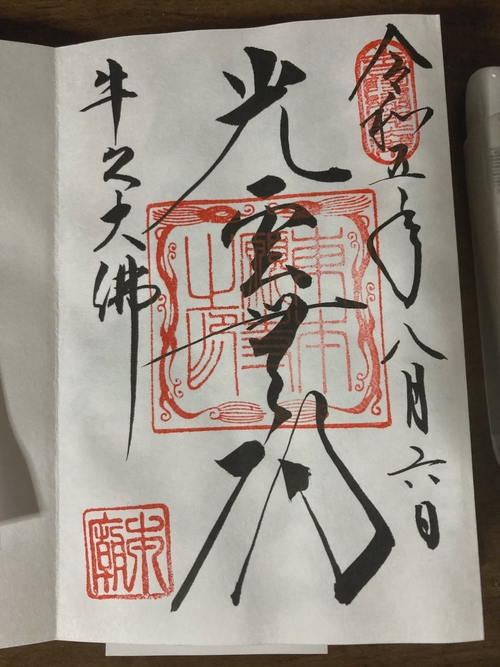 令和五年八月六日
光雲無碍
東本
願寺
之印
牛久大佛
本廟